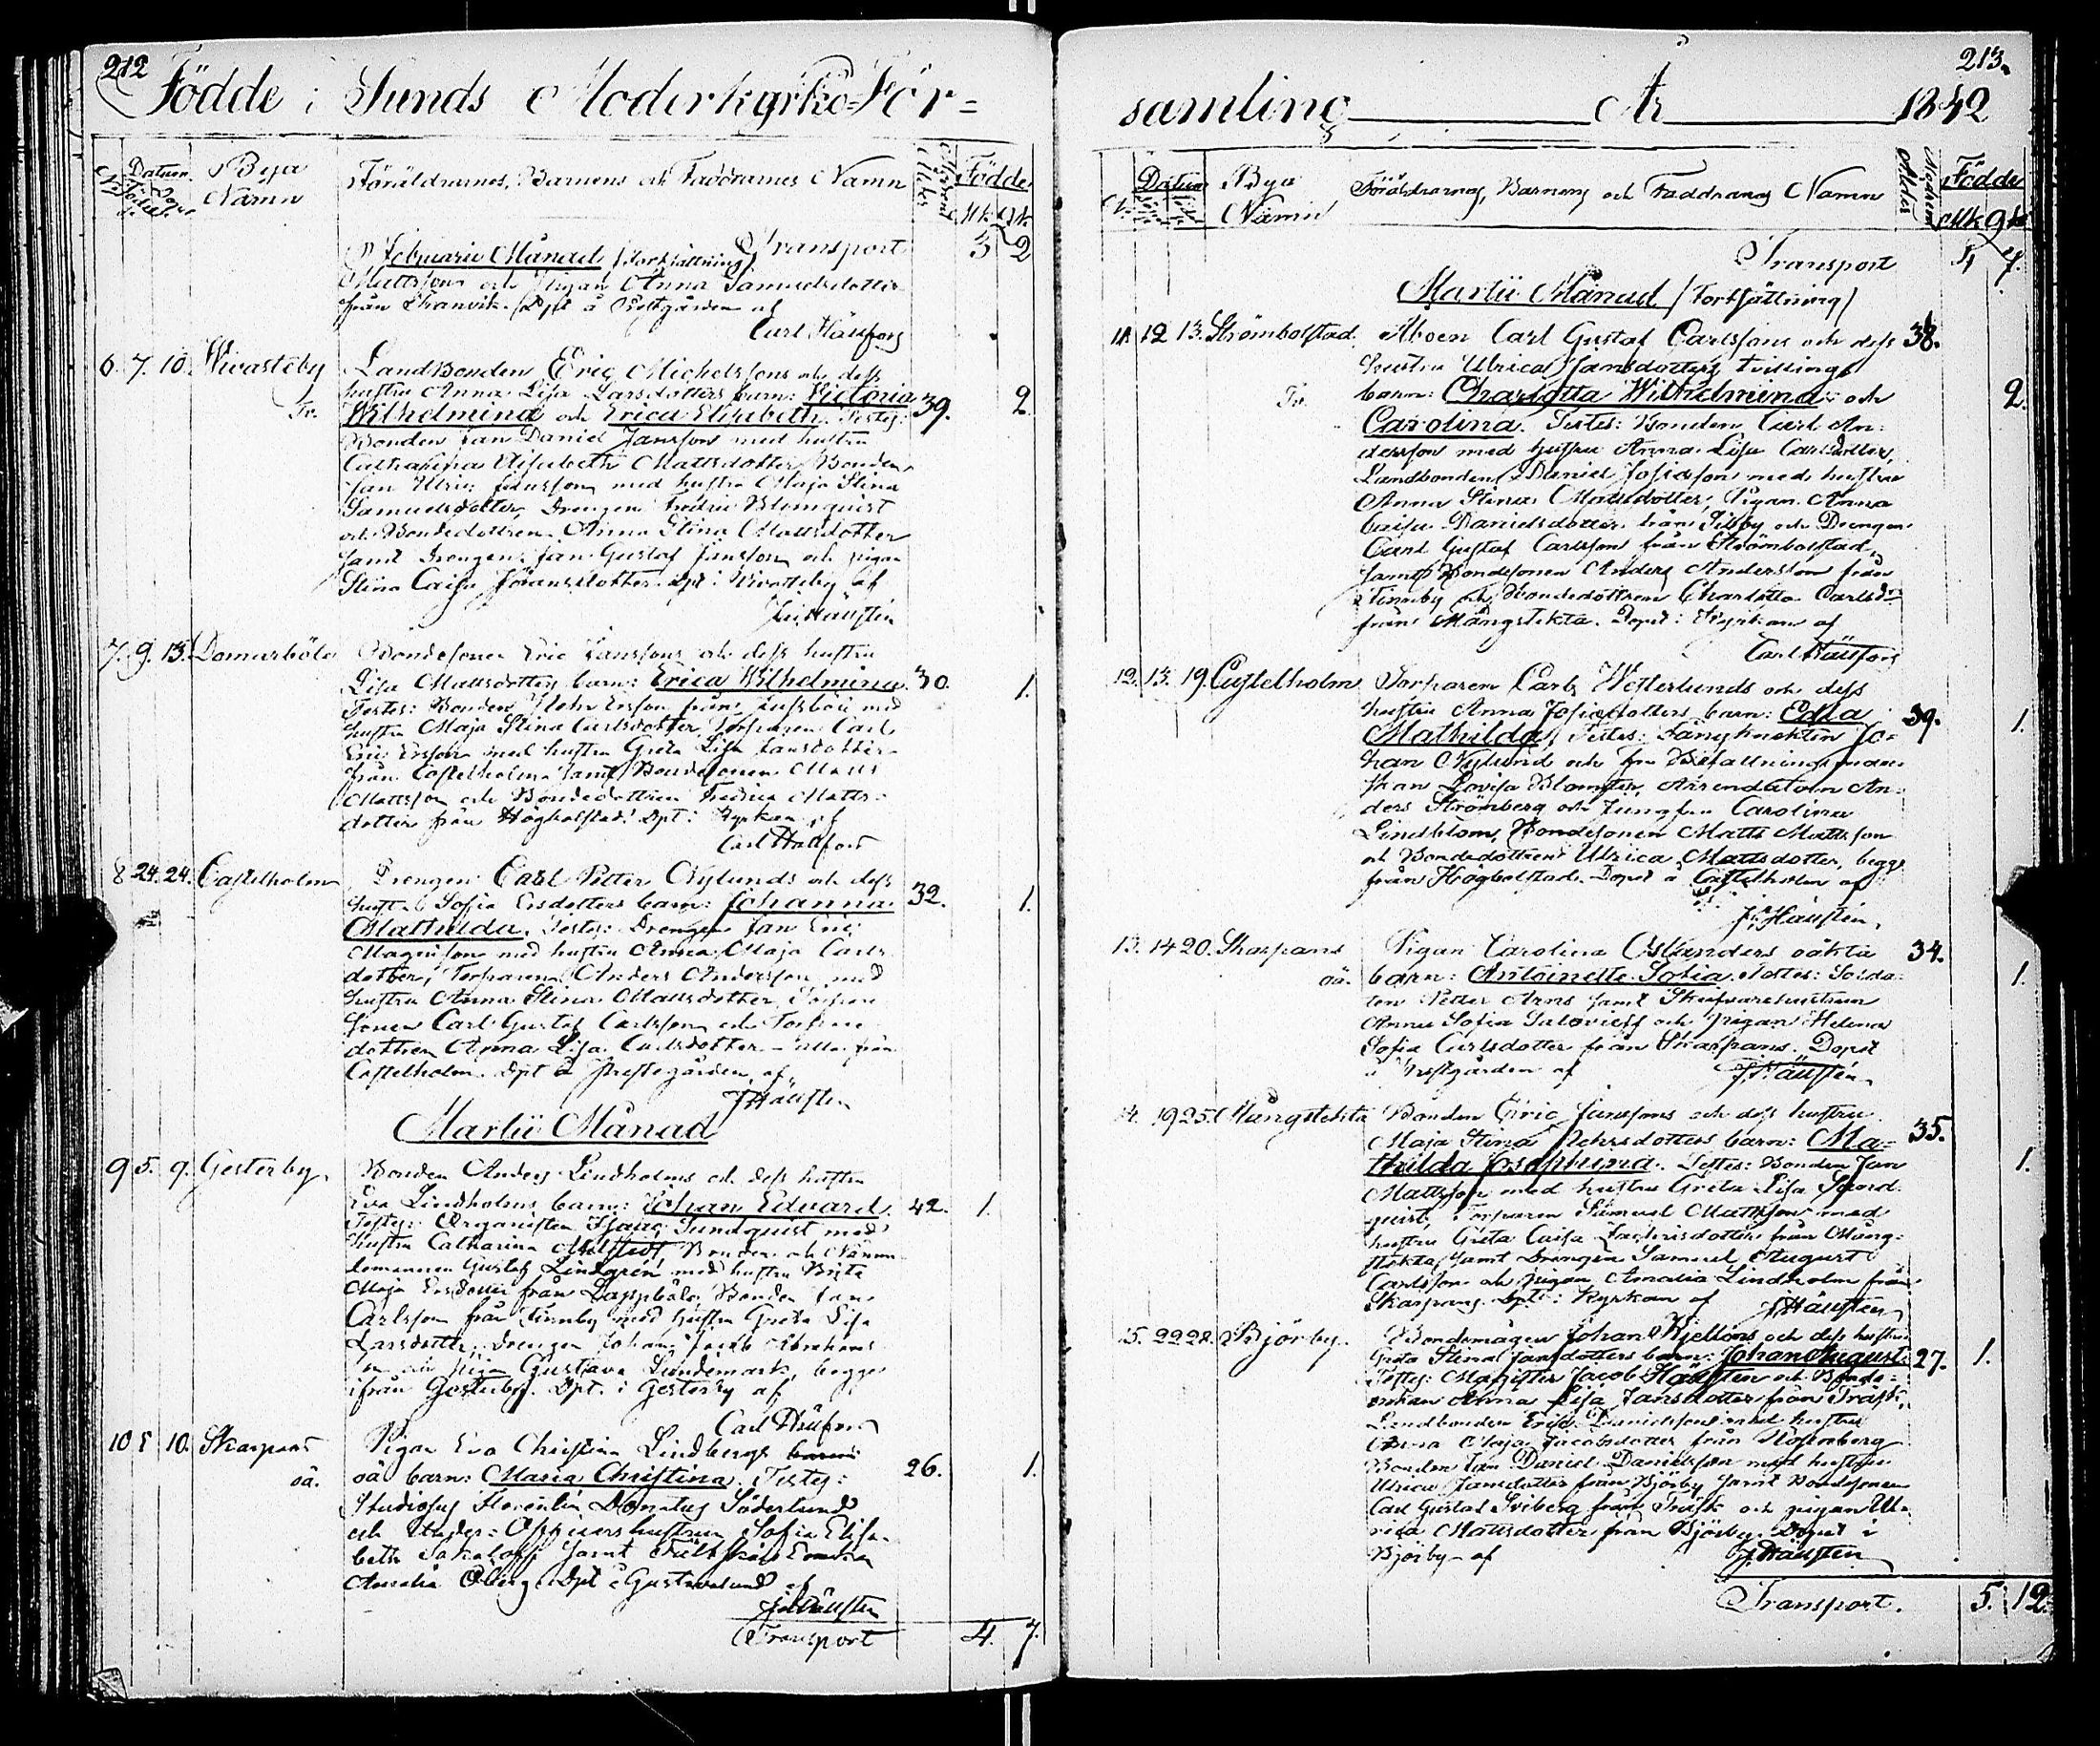 212
Födde i Sunds Moderkyrko=För=
No Datum Bya Namn
Föräldrarnes, Barnens och Faddrarnes Namn
Modrens Ålder
Födde
Mk. Qk.
Transport 3 2
Februarii Månad /Fortsättning/
Mattssons och Pigan Anna Samuelsdotter
från Tranvik. Dpt å Prestgården af
Carl Häusfors
6. 7. 10. Wivasteby Landbonden Eric Michelssons och dess
hustru Anna Lisa Larsdotters barn: Victoria
Tv. Wilhelmina och Erica Elisabeth. Testes: 39. 2.
Bonden Jan Daniel Jansson med hustru
Catharina Elisabeth Mattsdotter, Bonden
Jan Ulric Jansson med hustru Maja Stina
Samuelsdotter, Drengen Fredric Blomquist
och Bondedottren Anna Stina Mattsdotter
samt Drengen Jan Gustaf Jansson och pigan
Stina Caisa Jöransdotter. Dpt i Wivasteby af
J. Häusten
7. 9. 13. Domarböle Bondesonen Eric Janssons och dess hustru
Lisa Mattsdotters barn: Erica Wilhelmina. 30. 1.
Testes: Bonden Ersson från med
hustru Maja Stina Carlsdotter, Torparen Carl
Eric Ersson med hustru Greta Lisa Jansdotter
från Castelholm samt Bondesonen Matts
Mattsson och Bondedottren Fredrica Matts=
dotter från Högbolstad. Dpt i Kyrkan af
Carl Häusfors
8 24. 24. Castelholm Drengen Carl Petter Nylunds och dess
hustru Sofia Ersdotters barn: Johanna 32. 1.
Mathilda. Testes: Drengen Jan Eric
Magnusson med hustru Anna Maja Carls
dotter, Torparen Anders Andersson med
hustru Anna Stina Mattsdotter, Torpare
sonen Carl Gustaf Carlsson och Torpare
dottren Anna Lisa Carlsdotter - alla från
Castelholm. Dpt å Prestegården af
J. Häusten
Martii Månad
9 5. 9. Gesterby. Bonden Anders Lindholms och dess hustru
Eva Lindholms barn: Johan Eduard. 42. 1.
Testes: Organisten Isaac Sundquist med
hustru Catharina Bonden och Nämn
demannen Gustaf Lindgrén med hustru Brita
Maja Ersdotter från Lappböle, Bonden Jan
Carlsson från Finnby med hustru Greta Lisa
Larsdotter, Drengen Johan Jacob Abrahams
son och pigan Gustava Sundemark, begge
ifrån Gesterby. Dpt. i Gesterby af
Carl Häusfors
10 5 10. Skarpans Pigan Eva Christina Lindbergs barn
oä. oä barn: Maria Christina. Testes: 26. 1.
Studiosus Florentin Donatus Söderlund
och Under=Officers hustrun Sofia Elisa=
beth Sakaloff samt
Amalia Öberg. Dpt å Gustavelund af
J. Häusten
Transport 4. 7.
213.
samling År 1842
Datum Bya Namn
Föräldrarnas, Barnens och Faddrarnas Namn
Modrens Ålder
Födde
Mk Qk
Transport 4 7.
Martii Månad /Fortsättning/
11 12 13. Strömbolstad. Åboen Carl Gustaf Carlssons och dess 38.
hustru Ulrica Jansdotters tvillings
Tv. barn: Charlotta Wilhelmina och 2.
Carolina. Testes: Bonden Carl An=
dersson med hustru Anna Lisa Carlsdotter,
Landbonden Daniel Josefsson med hustru
Anna Stina Mattsdotter, Pigan Anna
Caisa Danielsdotter från Tibby och Drengen
Carl Gustaf Carlsson från Strömbolstad,
samt Bondesonen Anders Andersson från
Finnby och Bondedottren Charlotta Carlsdr
från Mångstekta. Dopt i Kyrkan af
Carl Häusfors
12. 13. 19. Castelholm Torparen Carl Wetterlunds och dess
hustru Anna Josefsdotters barn: Edla 39. 1.
Mathilda. Testes: Fångknekten Jo=
han Nylund och fru Befallningsman
skan Lovisa Blomster, Arrendatorn An=
ders Strömberg och Jungfru Carolina
Lindblom, Bondesonen Matts Mattsson
och Bondedottren Ulrica Mattsdotter, begge
från Högbolstad. Dopt å Castelholm af
J. Häusten.
13. 14 20. Skarpans Pigan Carolina Oslunders oäkta 34.
oä. barn: Antoinette Sofia. Testes: Solda= 1.
ten Petter Arns samt Skeppare hustrun
Anna Sofia och pigan Helena
Sofia Carlsdotter från Skarpans. Dopt
å Prestgården af J. Häusten.
14. 19 25. Mångstekta Bonden Eric Janssons och dess hustru
Maja Stina Pehrsdotters barn: Ma= 35.
thilda Josephina. Testes: Bonden Jan 1.
Mattsson med hustru Greta Lisa
quist, Torparen Samuel Mattsson med
hustru Greta Caisa Zachrisdotter från Mång=
stekta, samt Drengen Samuel August
Carlsson och pigan Amalia Lindholm från
Skarpans. Dpt i Kyrkan af J. Häusten
15. 22 28. Björby. Bondemågen Johan Kjelléns och dess hustru
Greta Stina Jansdotters barn: Johan August. 27. 1.
Testes: Magister Jacob Häusten och Bonde=
enkan Anna Lisa Jansdotter från Träsk,
Landbonden Eric Danielsson med hustru
Anna Maja Jacobsdotter från Rosenberg
Bonden Jan Daniel Danielsson med hustru
Ulrica Jansdotter från Björby samt Bondesonen
Carl Gustaf Sviberg från Träsk och pigan Ul=
rica Mattsdotter från Björby. Dopt i
Björby af J. Häusten
Transport. 5. 12.